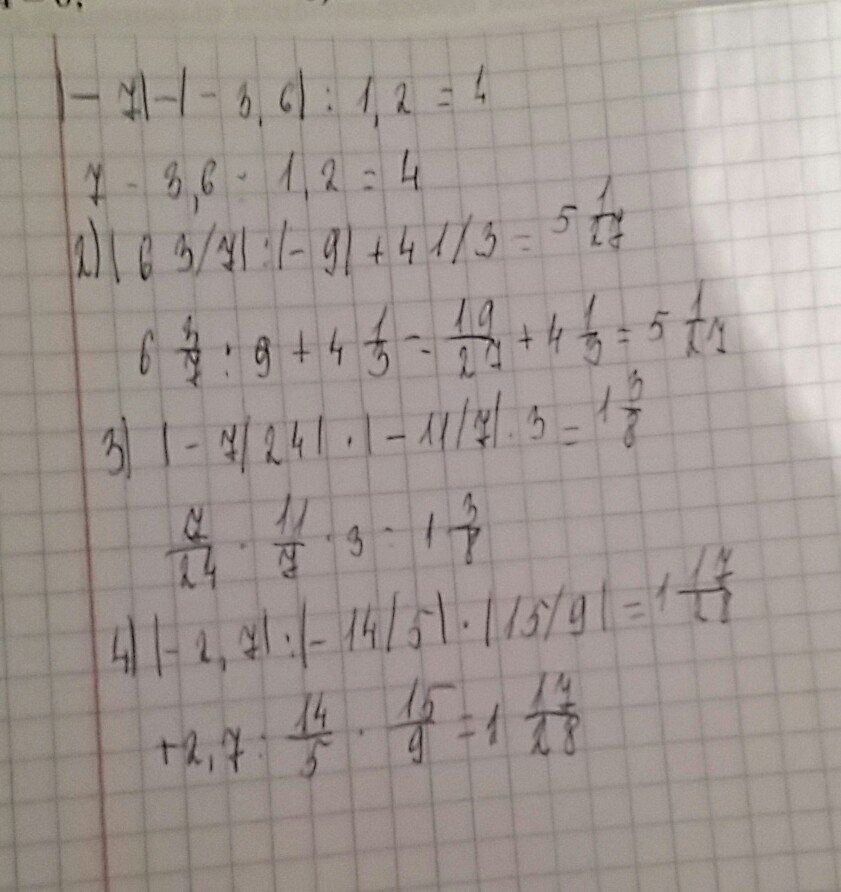 |- 7|-|- 3,6| : 1,2 = 4
7 - 3,6 : 1,2 = 4
2) |6 3/7| : |- 9| + 4 1/3 = 5 1/27
6 3/7 : 9 + 4 1/3 = 19/27 + 4 1/3 = 5 1/27
3) |- 7/24| · |- 11/7| · 3 = 1 3/8
7/24 · 11/7 · 3 = 1 3/8
4) |- 2,7| : |- 14/5| · |15/9| = 1 17/28
+2,7 : 14/5 · 15/9 = 1 17/28